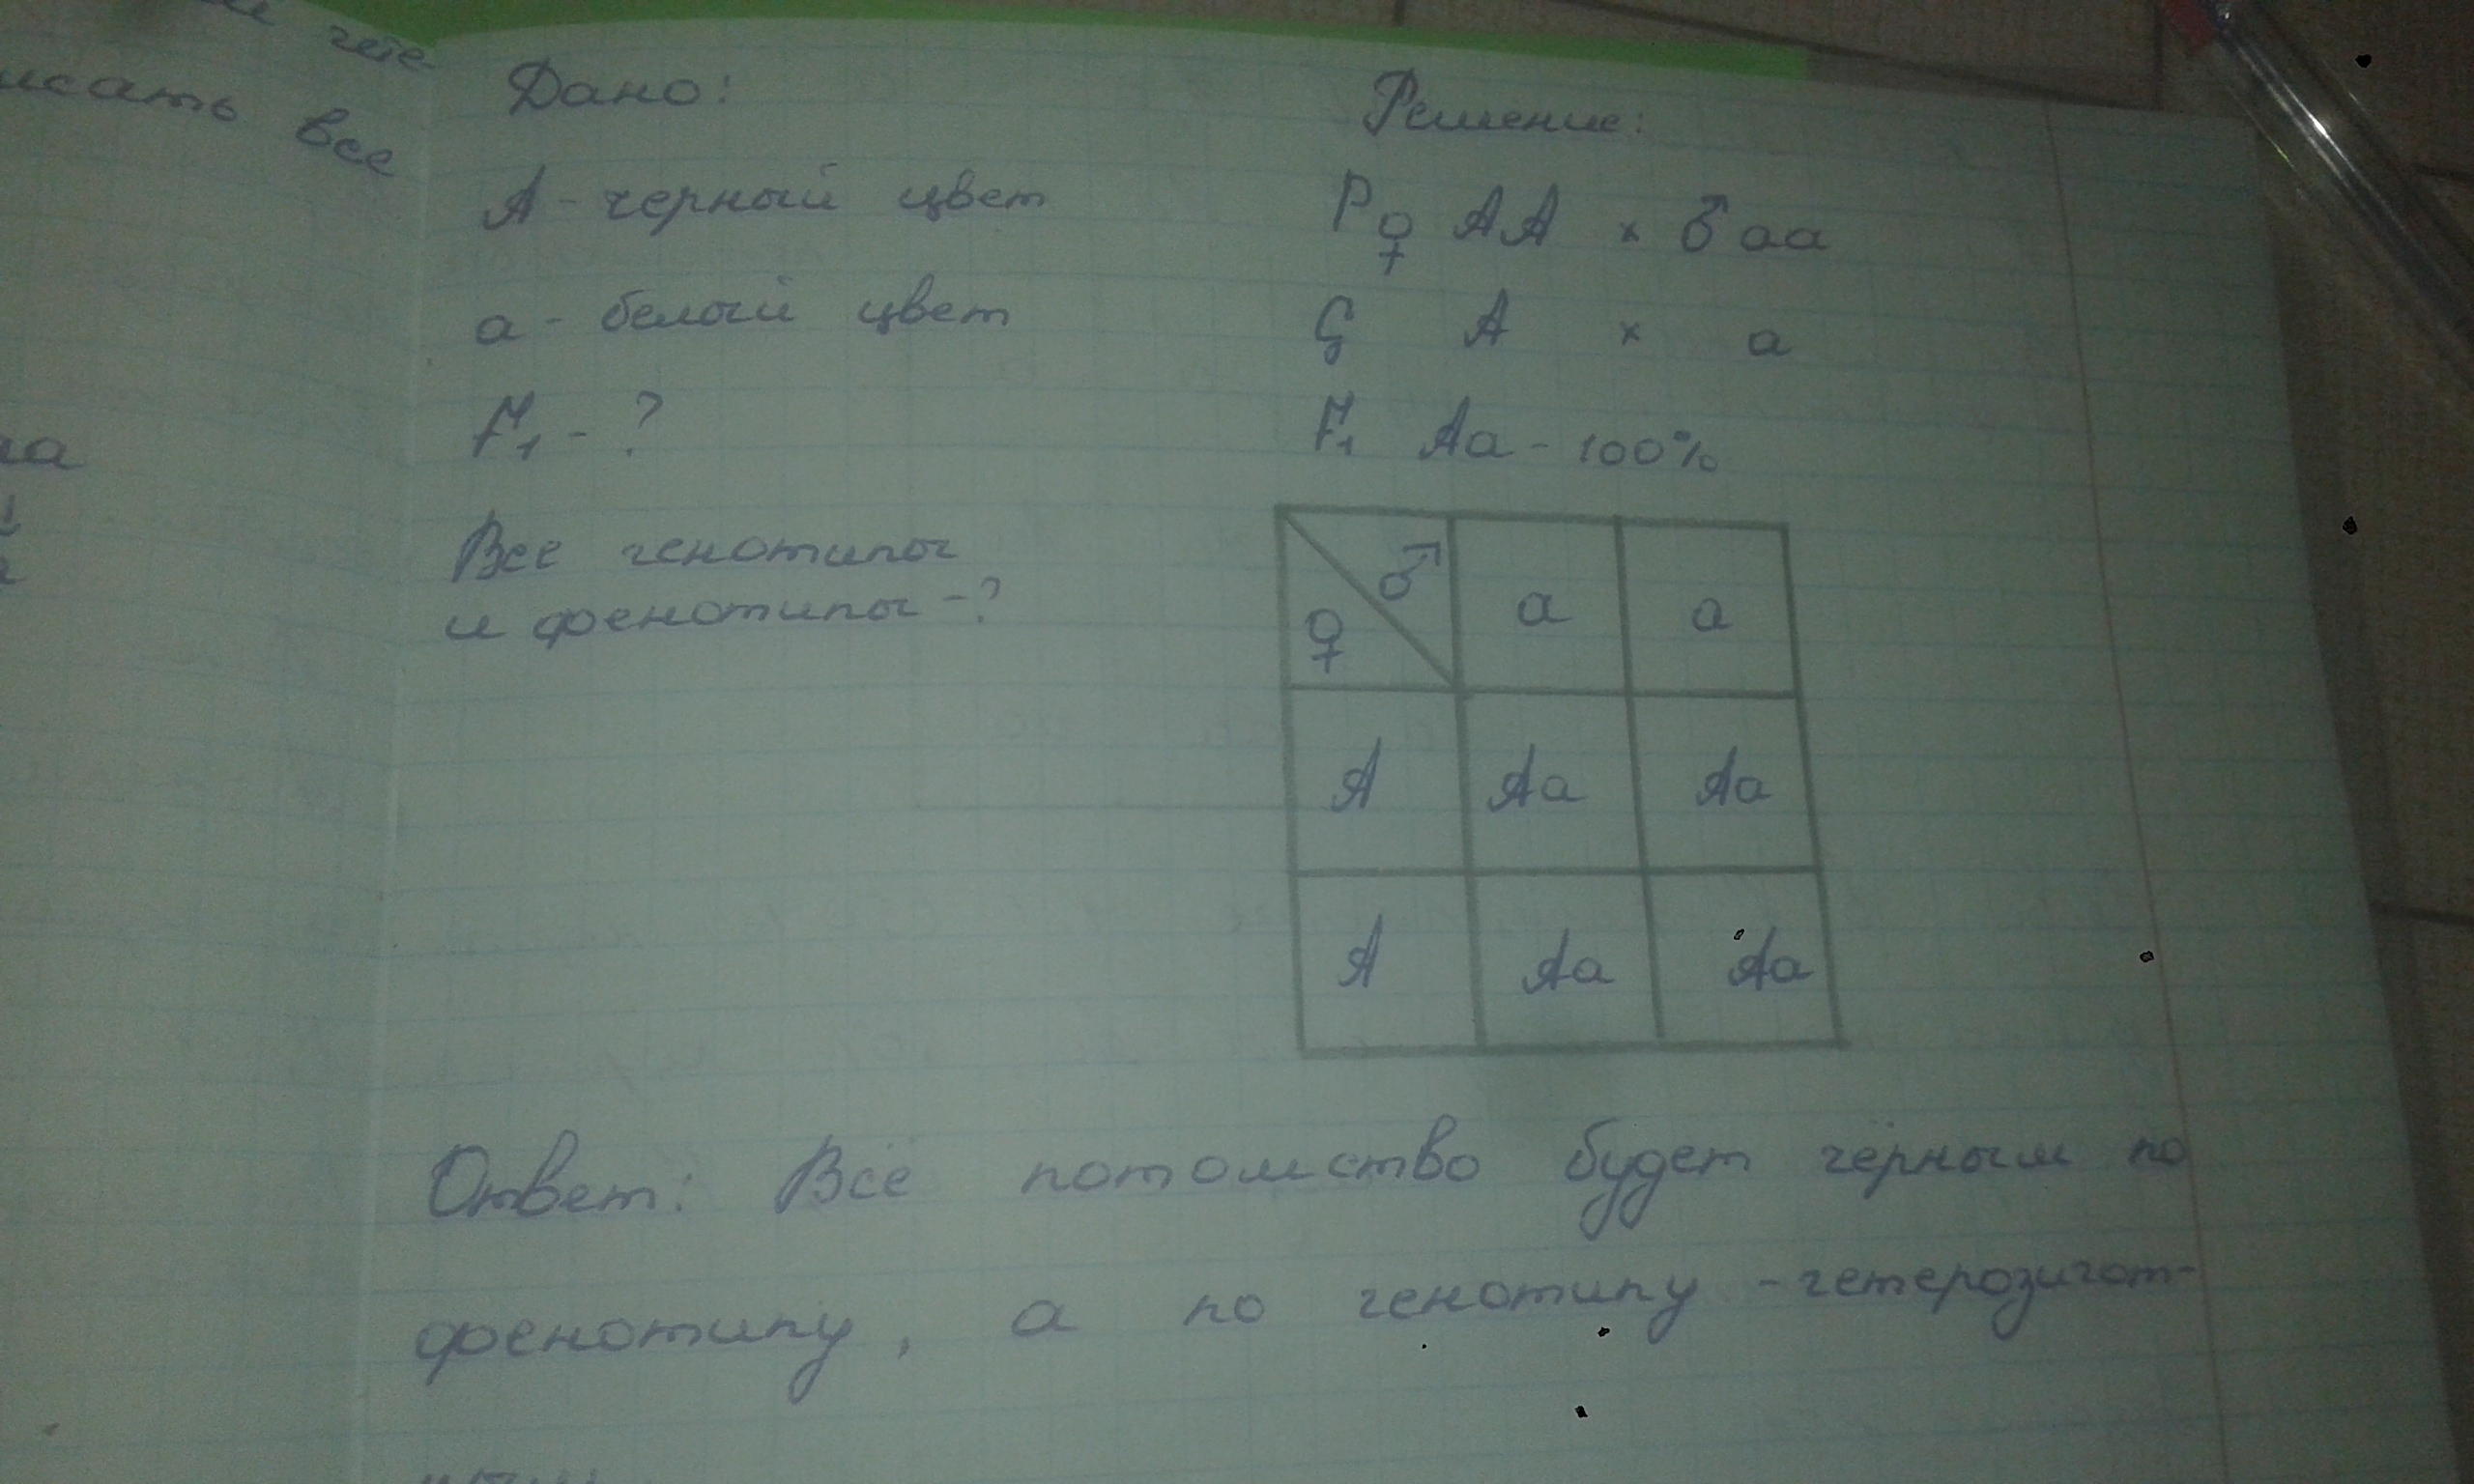 чете-
исать все
Дано:
А - черный цвет
а - белый цвет
F₁ - ?
Все генотипы
и фенотипы - ?
Решение:
P ♀ АА × ♂ аа
G А × а
F₁ Аа - 100%
♀ ♂ а а
А Аа Аа
А Аа Аа
Ответ: Всё потомство будет чёрным по
фенотипу, а по генотипу - гетерозигот-